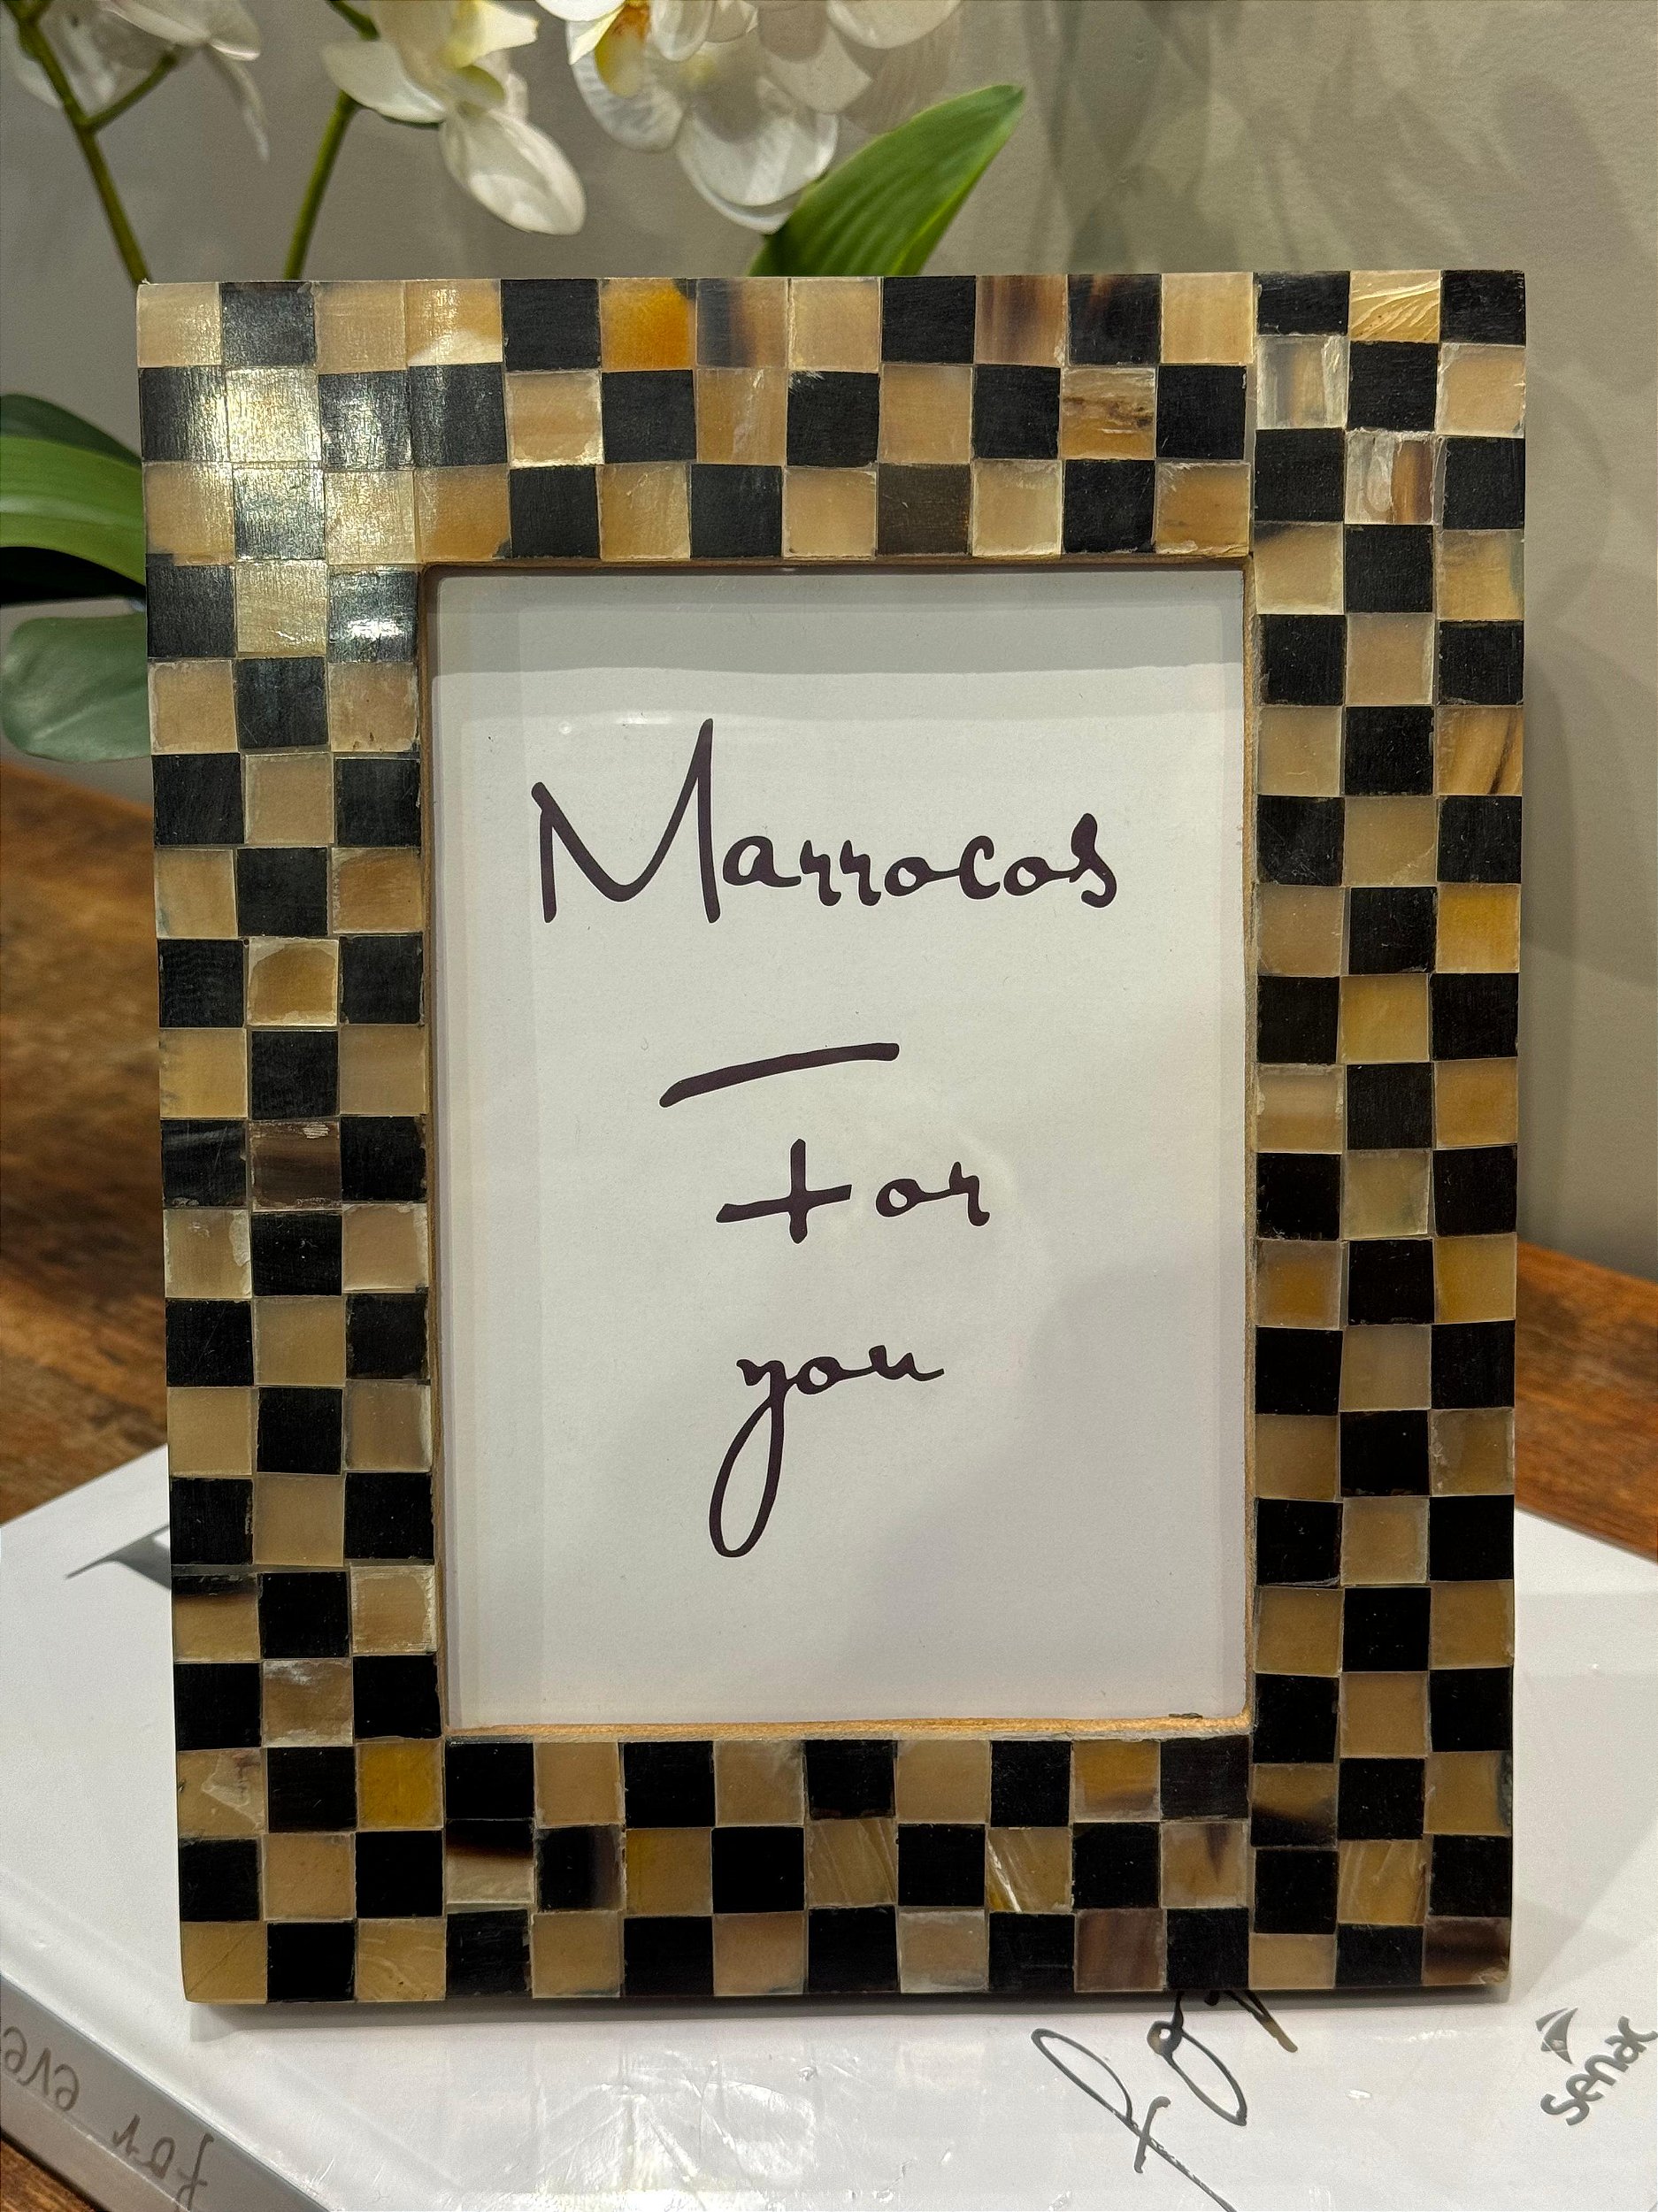 Marrocos
For
you
for
senac
for eve